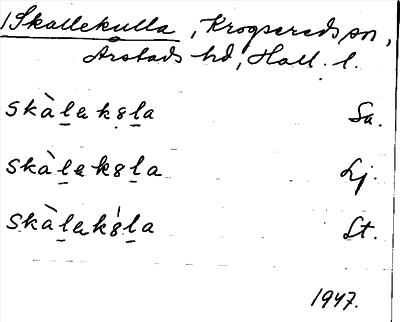 Skallekulla, Krogsereds sn,
Årstads hd, Hall. l.
skàlek8la Sa.
skàlek8la Lj.
skàlek8́la St.
1947.